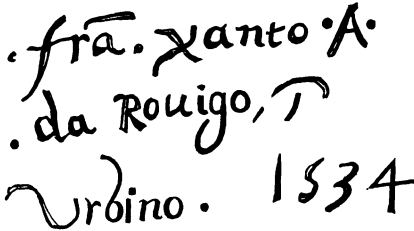 .frã. Xanto .A.
.da Rouigo, T
Vrbino. 1534